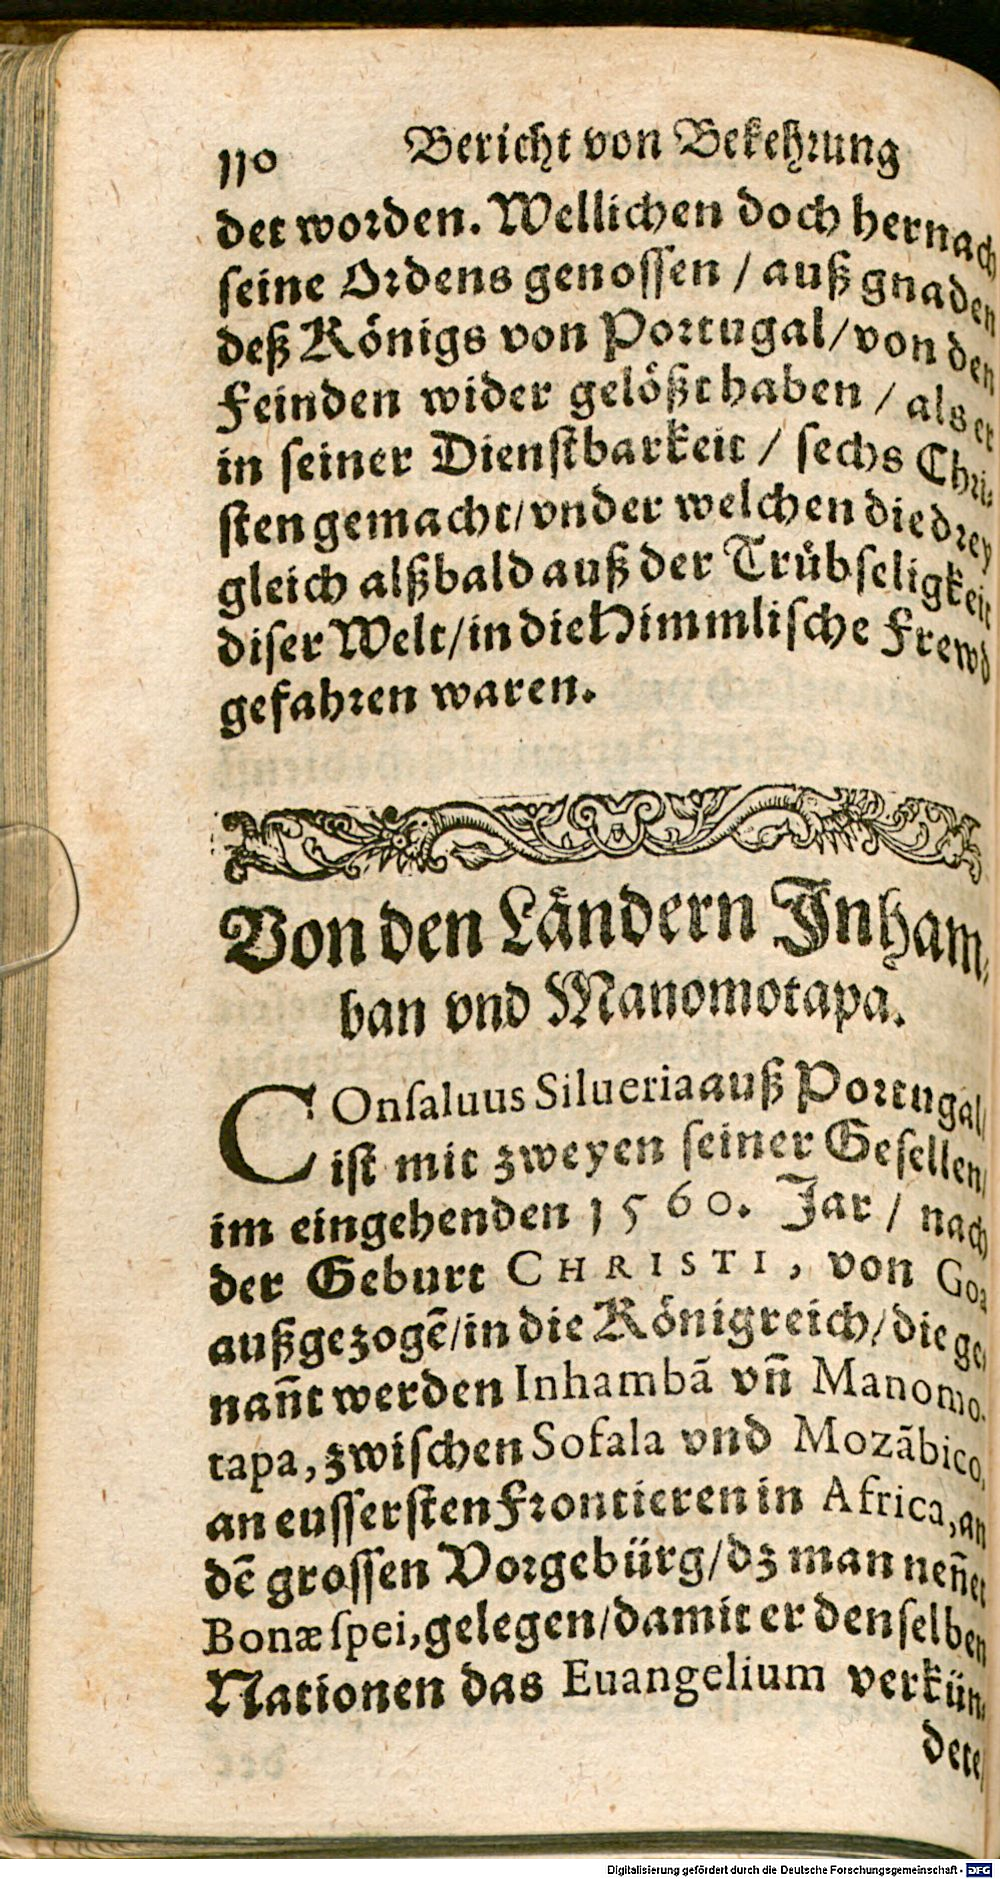 110 Bericht von Bekehrung
det worden. Wellichen doch hernach
seine Ordens genossen / auß gnaden
deß Königs von Portugal / von den
Feinden wider gelößt haben / als er
in seiner Dienstbarkeit / sechs Chri-
sten gemacht / vnder welchen die drey
gleich alßbald auß der Trübseligkeit
diser Welt / in die Himmlische Frewd
gefahren waren.
Von den Ländern Inham-
ban vnd Manomotapa.
COnsaluus Silueria auß Portugal /
ist mit zweyen seiner Gesellen /
im eingehenden 1560. Jar / nach
der Geburt CHRISTI, von Goa
außgezogẽ / in die Königreich / die ge-
nañt werden Inhambã vñ Manomo-
tapa, zwischen Sofala vnd Mozãbico,
an eussersten Frontieren in Africa, an
dẽ grossen Vorgebürg / dz man neñet
Bonæ spei, gelegen / damit er denselben
Nationen das Euangelium verkün-
dete /
Digitalisierung gefördert durch die Deutsche Forschungsgemeinschaft - DFG